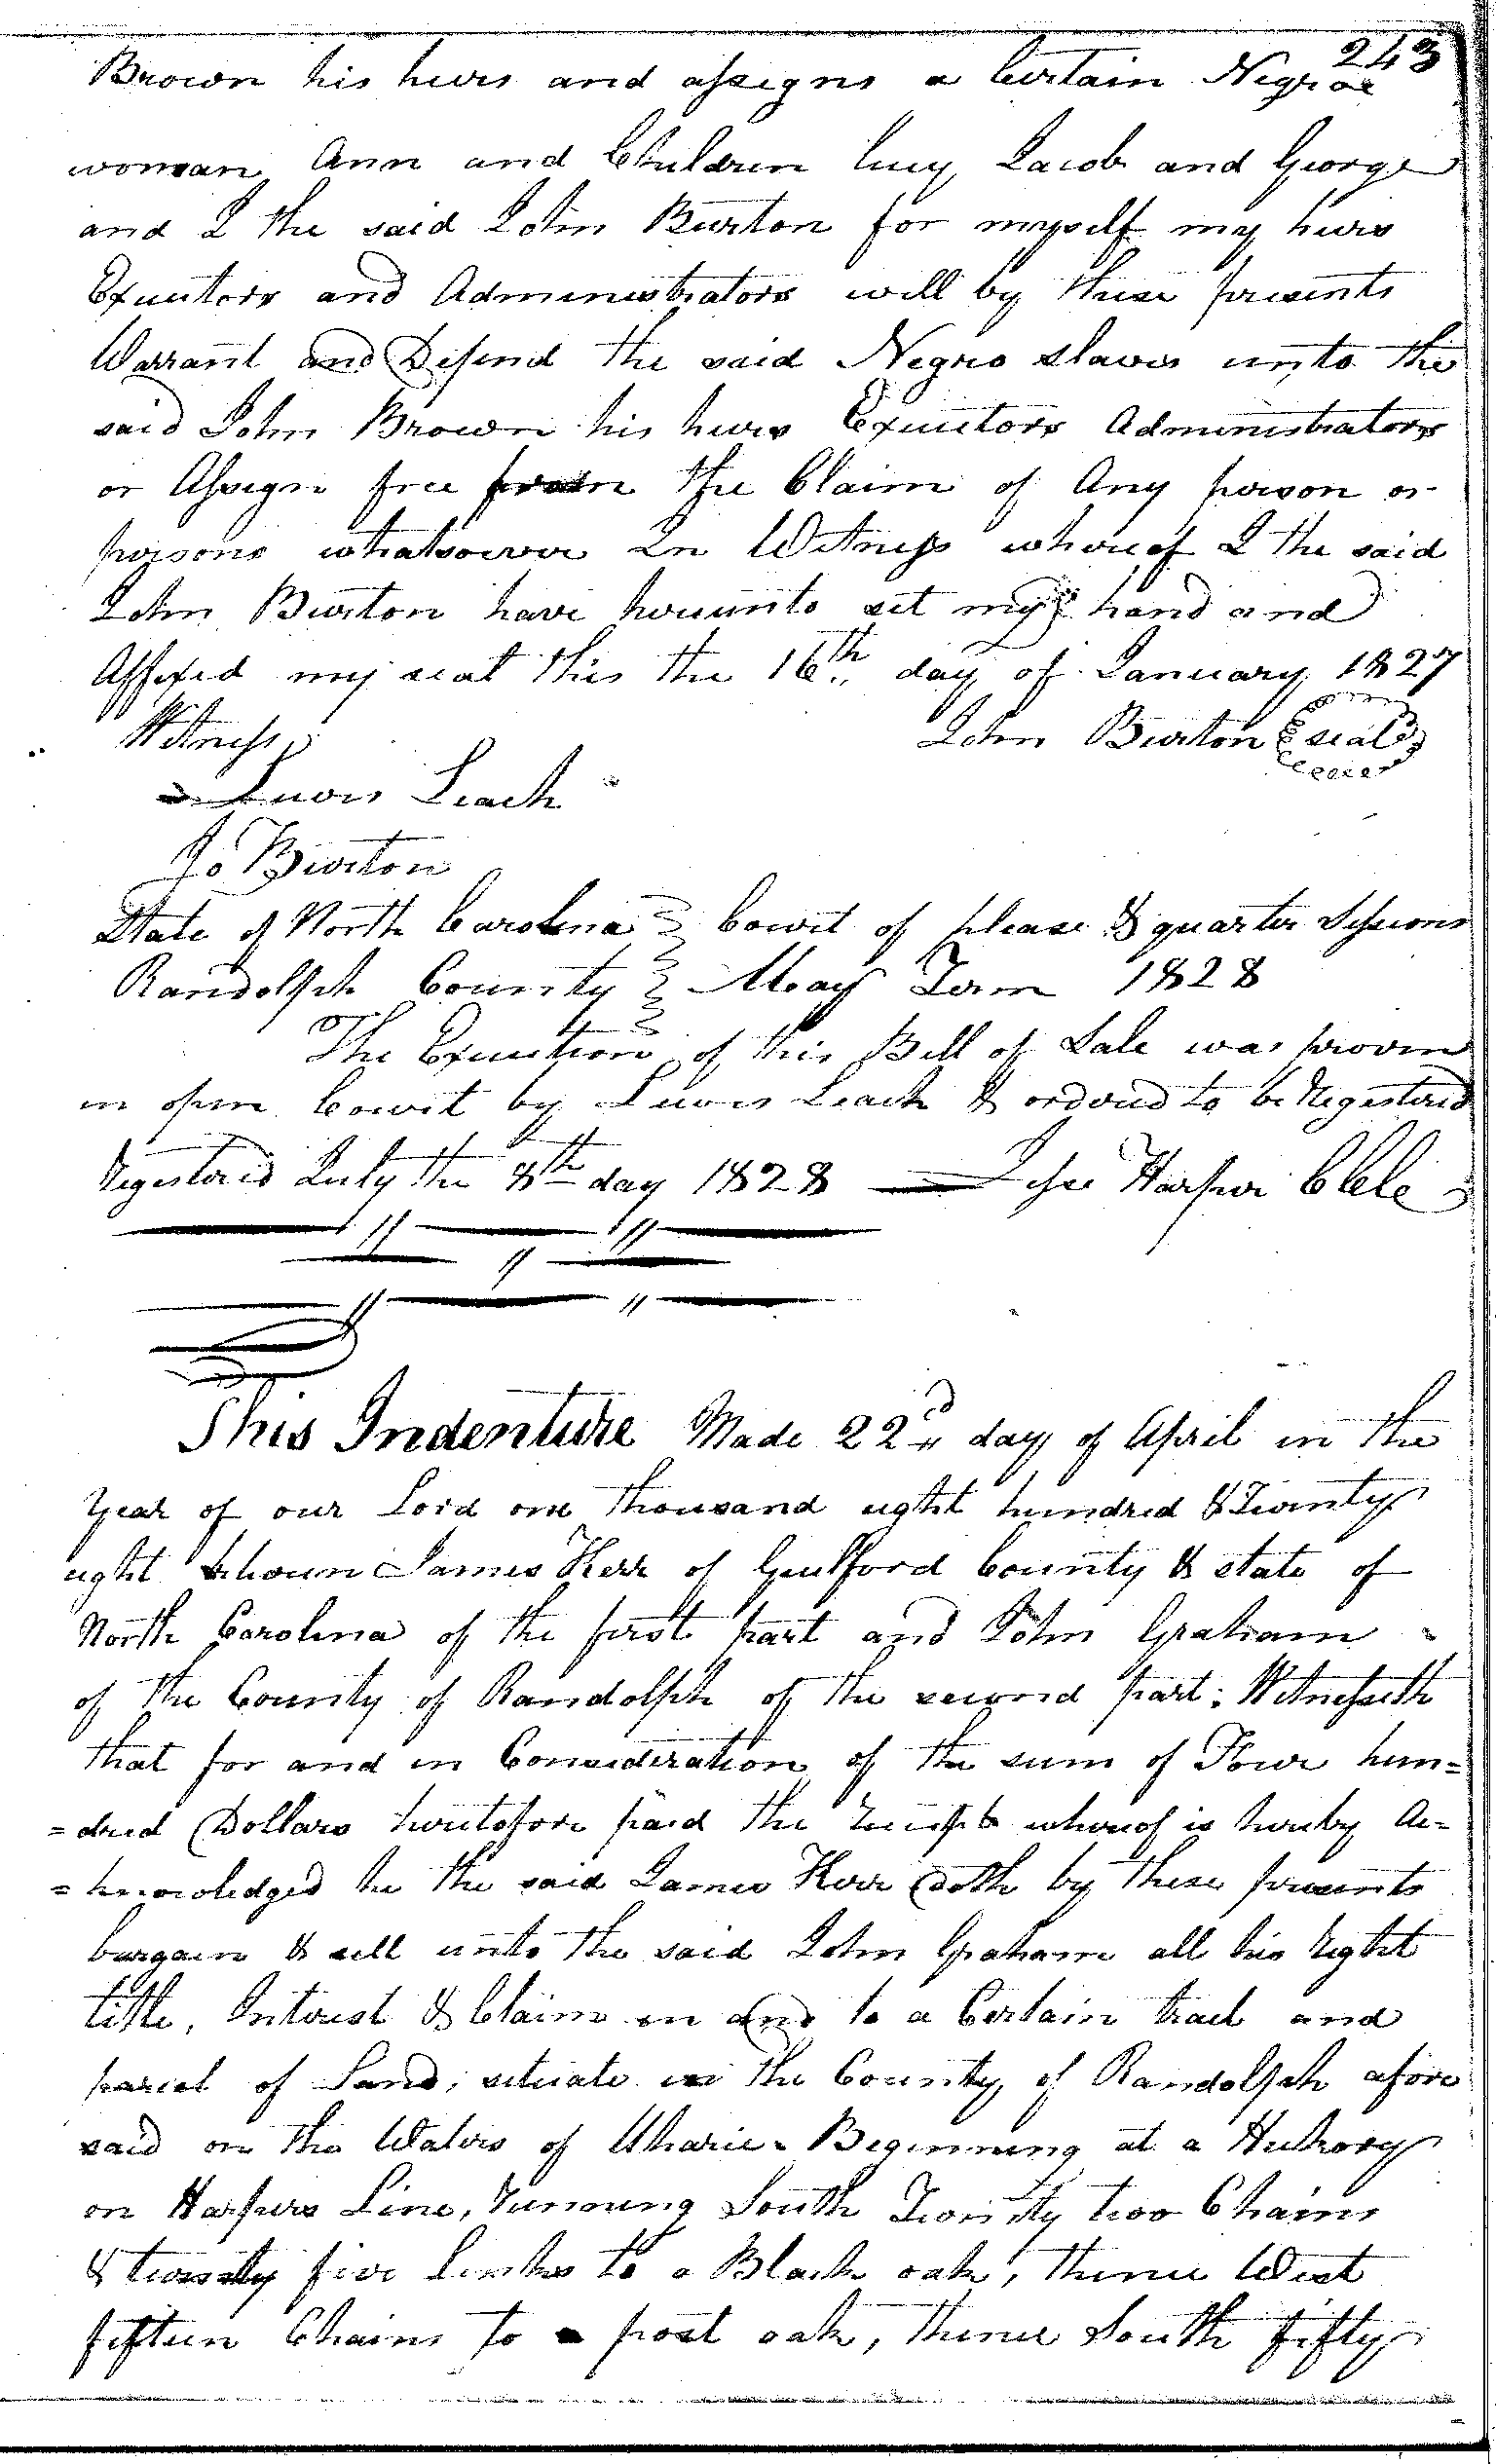 243
Brown his heirs and assigns a Certain Negroe
woman Ann and Children Lucy Jacob and George
and I the said John Burton for myself my heirs
Executors and Administrators will by these presents
Warrant and Defend the said Negro slaves unto the
said John Brown his heirs Executors Administrators
or Assigns free from the Claim of Any person or
persons whatsoever In Witness whereof I the said
John Burton have hereunto set my hand and
Affixed my seal this the 16th day of January 1827
Witness John Burton (seal)
Lewis Leach
Jo Burton
State of North Carolina } Court of please & quarter Sessions
Randolph County } May Term 1828
The Execution of this Bill of Sale was proven
in open Court by Lewis Leach & ordered to be Registered
Registered July the 8th day 1828 — Jesse Harper Clk
This Indenture Made 22d day of April in the
Year of our Lord one thousand eight hundred & Twenty
eight between James Kerr of Guilford County & state of
North Carolina of the first part and John Graham
of the County of Randolph of the second part: Witnesseth
that for and in Consideration of the sum of Four hun=
=dred Dollars heretofore paid the receipt whereof is hereby Ac=
=knowledged he the said James Kerr doth by these presents
bargain & sell unto the said John Graham all his right
title, Interest & Claim in and to a Certain tract and
parcel of Land, situate in the County of Randolph afore
said on the Waters of Uharie. Beginning at a Hickory
on Harpers Line, running South Twenty two Chains
& twenty five Links to a Black oak, thence West
fifteen Chains to a post oak, thence South fifty